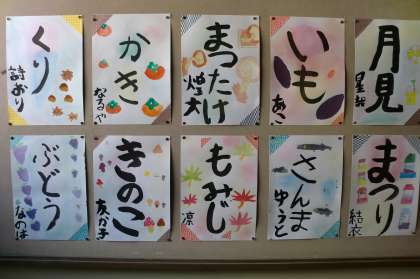 月見
星哉
いも
あこ
まつたけ
かき
なるや
くり
詩おり
まつり
結衣
さんま
ゆうと
もみじ
凛
きのこ
ぶどう
なのは